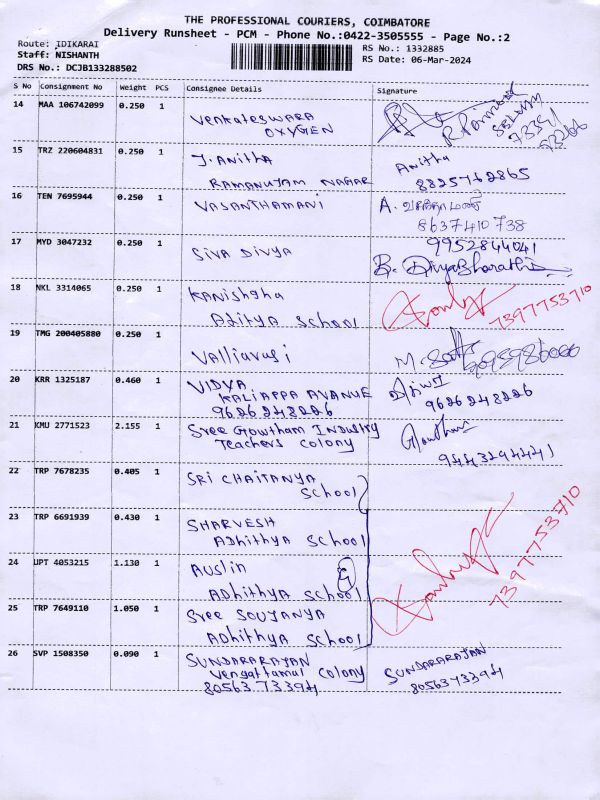 THE PROFESSIONAL COURIERS, COIMBATORE
Delivery Runsheet - PCM - Phone No.:0422-3505555 - Page No.:2
Route: IDIKARAI
Staff: NISHANTH
DRS No.: DCJB133288502
RS No.: 1332885
RS Date: 06-Mar-2024
S No Consignment No Weight PCS Consignee Details Signature
14 MAA 106742099 0.250 1 Venkateswara
OXYGEN
15 TRZ 220604831 0.250 1 J. Anitha Anitha
RAMANUJAM NAGAR 8825712865
16 TEN 7695944 0.250 1 VASANTHAMANI A. வசந்தாமணி
8637410738
17 MYD 3047232 0.250 1 SIVA DIVYA 9952844041
B. DivyaBharathi
18 NKL 3314065 0.250 1 KANISHGHA
Aditya School 7397753710
19 TMG 200405880 0.250 1 Valliarasi
20 KRR 1325187 0.460 1 VIDYA
KALIAPPA AVANUE
9626248226 9626248226
21 KMU 2771523 2.155 1 Sree Gowtham Industry
Teachers colony 9443294441
22 TRP 7678235 0.405 1 SRI CHAITANYA
School
23 TRP 6691939 0.430 1 SHARVESH
ADhithya School
24 UPT 4053215 1.130 1 Auslin
ADhithya School
25 TRP 7649110 1.050 1 Sree SOUJANYA
ADhithya School
7397753710
26 SVP 1508350 0.090 1 SUNDARARAJAN SUNDARARAJAN
Vengattamal Colony
80563 73394 8056373394